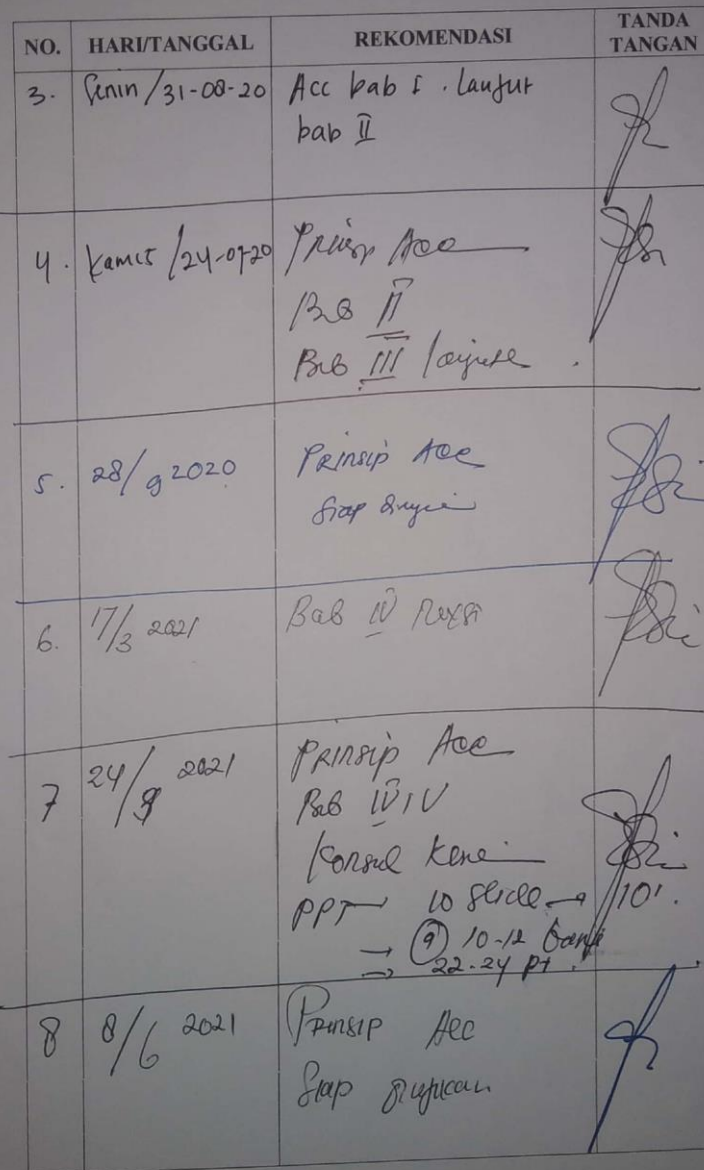 NO. HARI/TANGGAL REKOMENDASI TANDA TANGAN
3. Senin/31-08-20 Acc bab I. Lanjut
bab II
4. Kamis/24-09-20 Prinsip Acc
Bab II
Bab III lanjut
5. 28/9 2020 Prinsip Acc
Siap diuji
6. 17/3 2021 Bab IV Revisi
7 24/ 2021 Prinsip Acc
Bab IV, V
Konsul Kene
PPT 10 Slide → 10'.
→ 9 10-12 baris
→ 22-24 pt
8 8/6 2021 Prinsip Acc
Siap diujikan